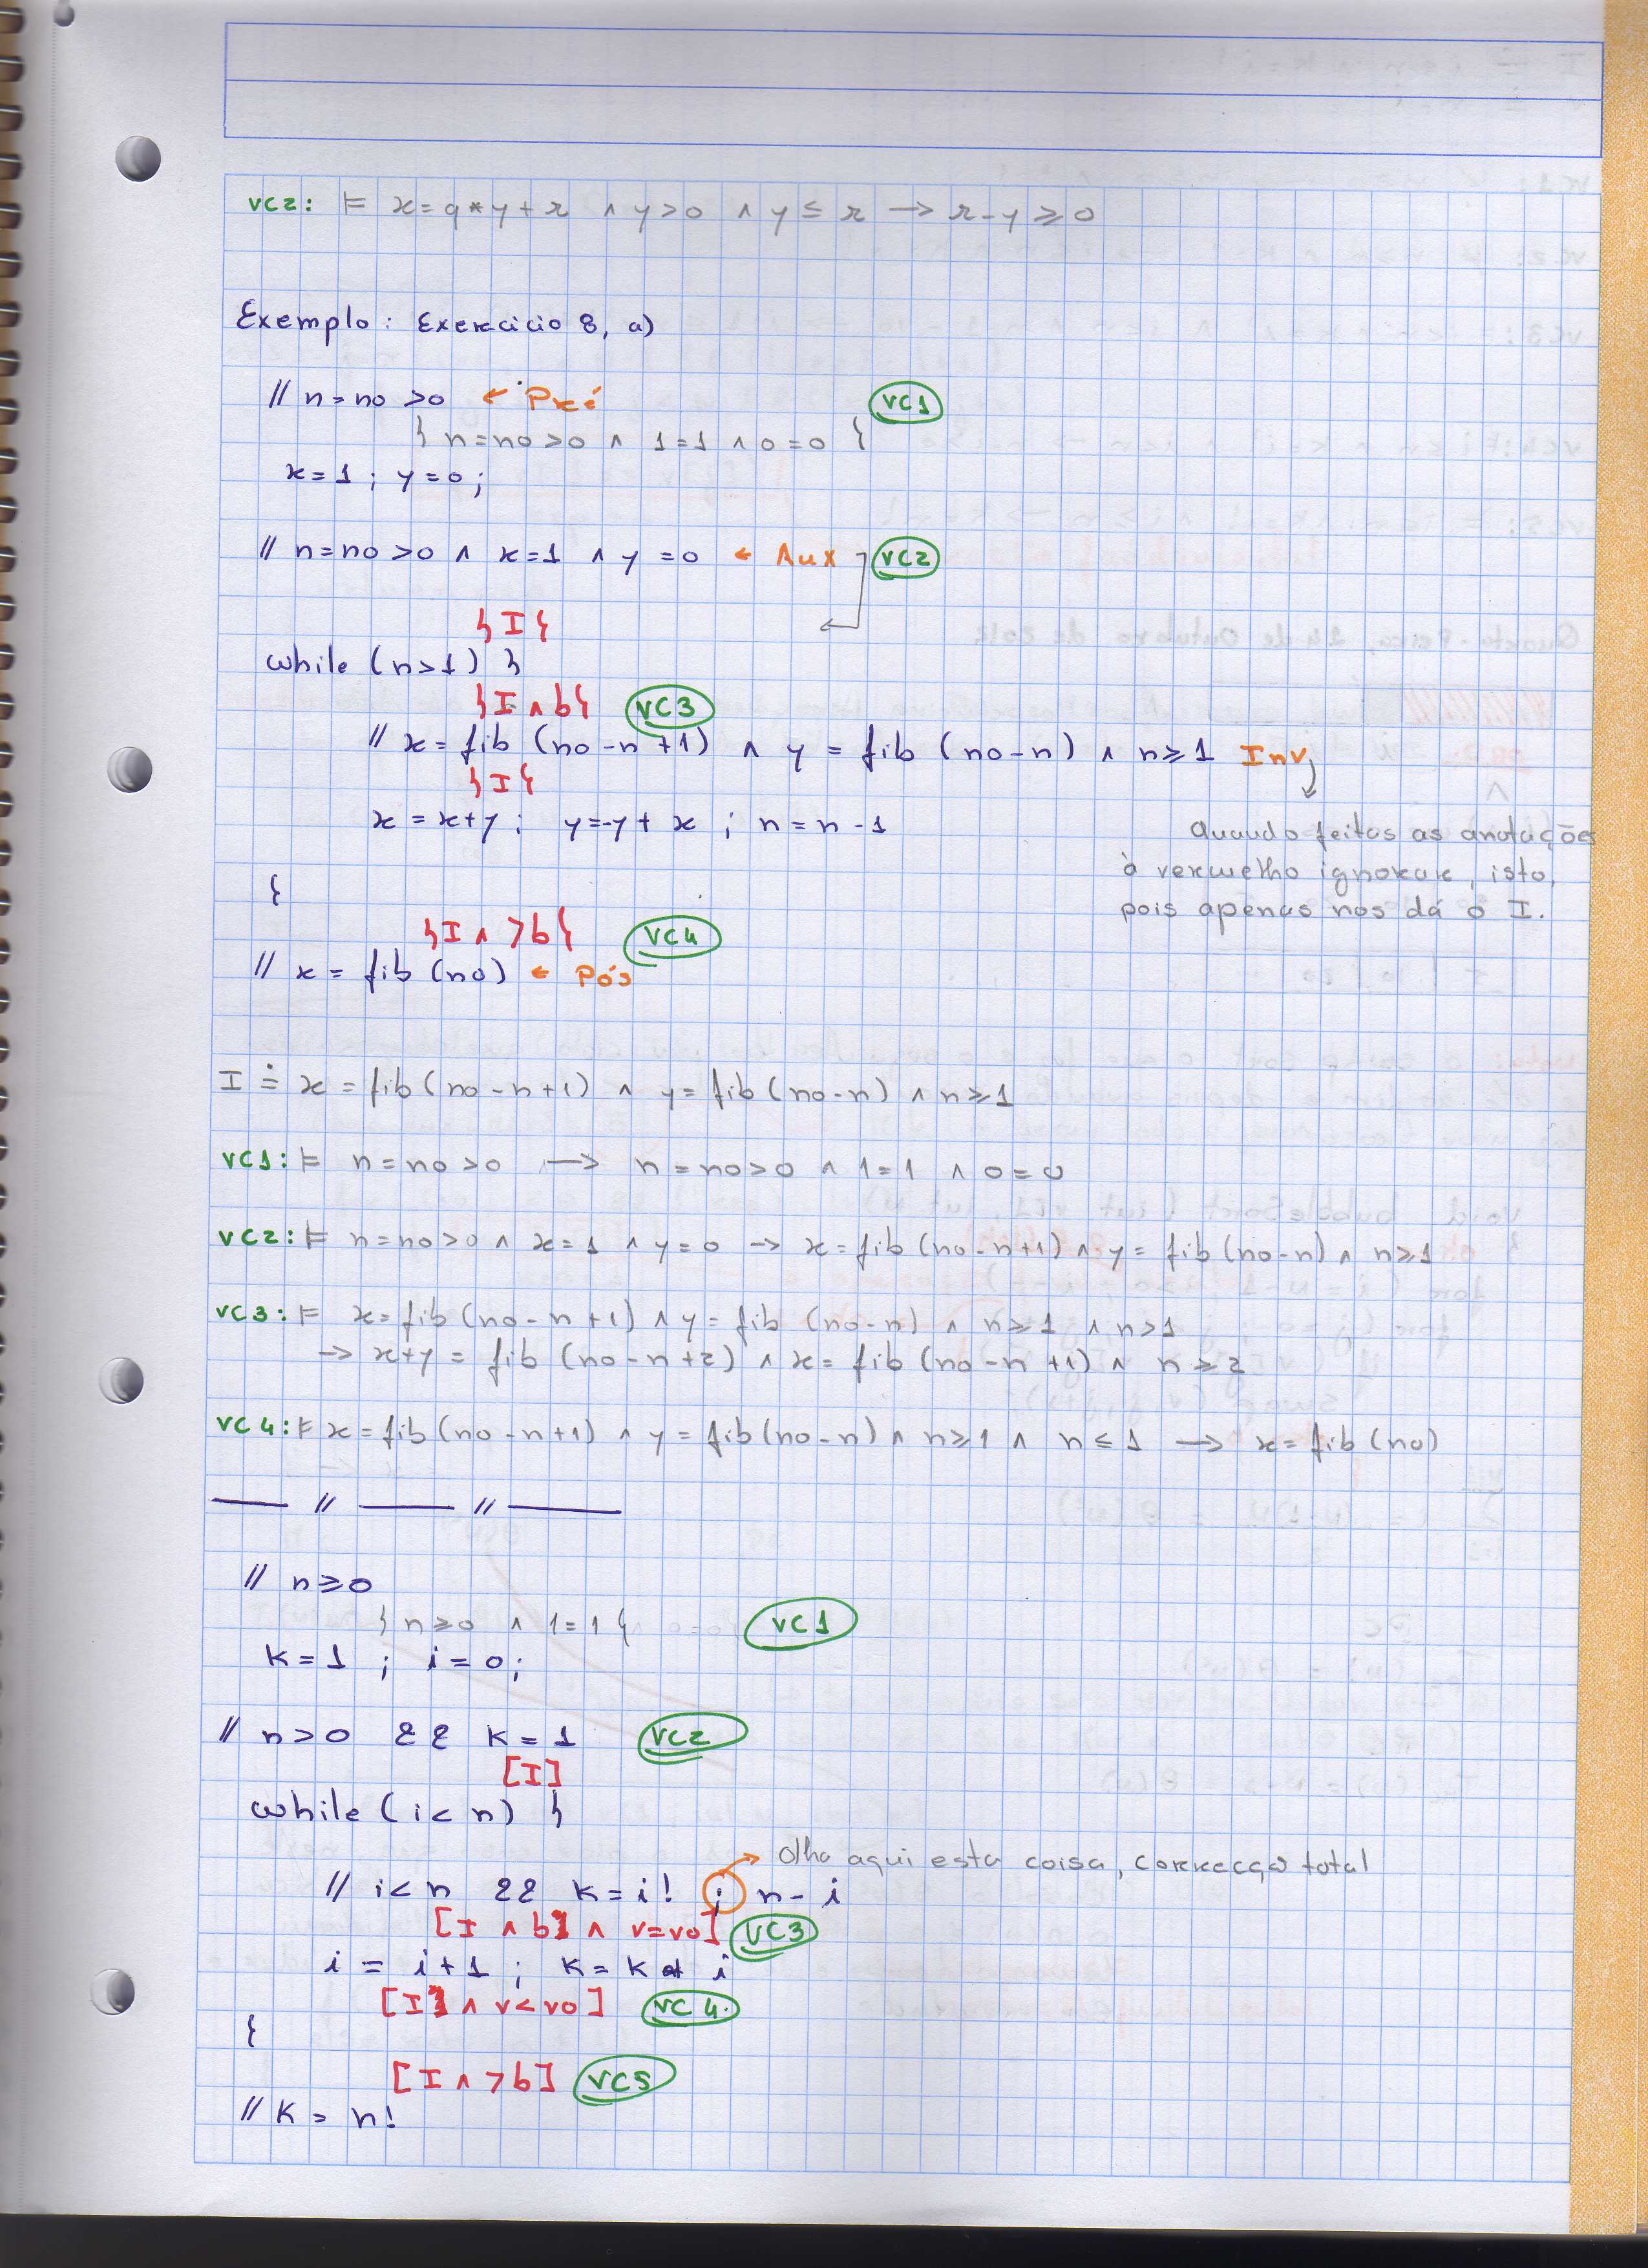 VC2: ⊨ x = q*y + r ∧ y>0 ∧ y ≤ r → r-y ≥ 0
Exemplo: Exercicio 8, a)
// n = no > 0 ← Pré
} n = no > 0 ∧ 1=1 ∧ 0=0 { VC1
x = 1 ; y = 0 ;
// n = no > 0 ∧ x = 1 ∧ y = 0 ← Aux VC2
} I {
while (n > 1) }
} I ∧ b { VC3
// x = fib (no - n + 1) ∧ y = fib (no - n) ∧ n ≥ 1 Inv
} I {
x = x+y ; y = -y + x ; n = n - 1
Quando feitas as anotações
à vermelho ignorar, isto,
pois apenas nos dá o I.
{
} I ∧ ¬b { VC4
// x = fib (no) ← Pós
I ≐ x = fib (no - n + 1) ∧ y = fib (no - n) ∧ n ≥ 1
VC1: ⊨ n = no > 0 → n = no > 0 ∧ 1 = 1 ∧ 0 = 0
VC2: ⊨ n = no > 0 ∧ x = 1 ∧ y = 0 → x = fib (no - n + 1) ∧ y = fib (no - n) ∧ n ≥ 1
VC3: ⊨ x = fib (no - n + 1) ∧ y = fib (no - n) ∧ n ≥ 1 ∧ n > 1
→ x+y = fib (no - n + 2) ∧ x = fib (no - n + 1) ∧ n ≥ 2
VC4: ⊨ x = fib (no - n + 1) ∧ y = fib (no - n) ∧ n ≥ 1 ∧ n ≤ 1 → x = fib (no)
// //
// n ≥ 0
} n ≥ 0 ∧ 1 = 1 { VC1
k = 1 ; i = 0 ;
// n > 0 && k = 1 VC2
[I]
while (i < n) }
→ Olha aqui esta coisa, correcção total
// i < n && k = i! ; n - i
[I ∧ b ∧ v = vo] VC3
i = i + 1 ; k = k * i
[I ∧ v < vo] VC4.
{
[I ∧ ¬b] VC5
// k = n!